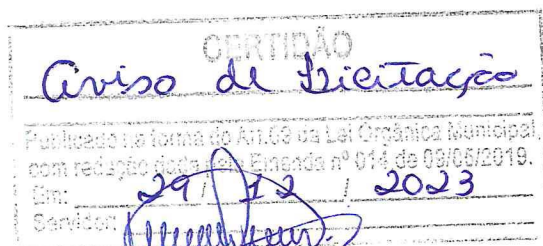 CERTIDÃO
Aviso de Licitação
Publicado na forma do Art.63 da Lei Orgânica Municipal,
com redação dada pela Emenda nº 014 de 09/05/2019.
Em: 29 / 12 / 2023
Servidor: